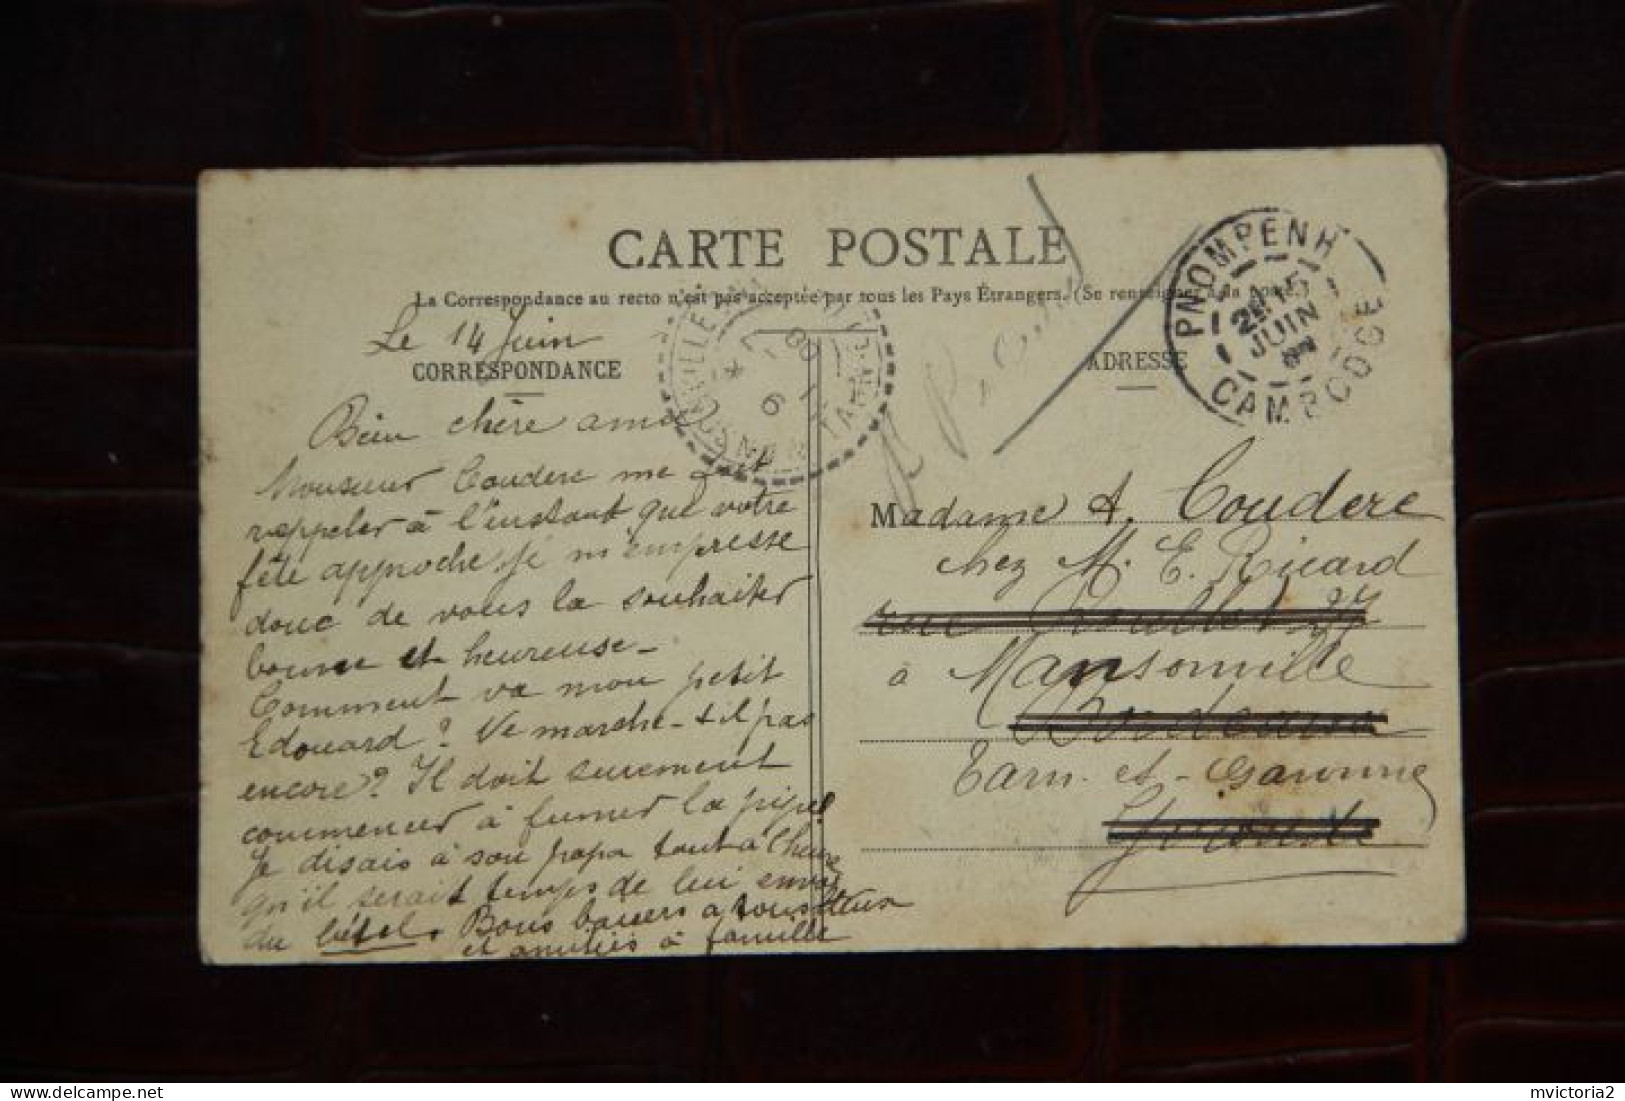 CARTE POSTALE
La Correspondance au recto n'est pas acceptée par tous les Pays Étrangers. (Se renseigner à la Poste.)
CORRESPONDANCE
ADRESSE
PNOMPENH
JUIN
CAMBODGE
TARN
Le 14 Juin
Bien chère amie
Monsieur Couderc me fait
rappeler à l'instant que votre
fête approche, je m'empresse
donc de vous la souhaiter
bonne et heureuse_
Comment va mon petit
Edouard? Ve marche-t-il pas
encore? Il doit surement
commencer à fumer la pipe
Je disais à son papa tout à l'heure
qu'il serait temps de lui envoyer
du bétel. Bons baisers à tous deux
et amitiés à famille
Madame A. Couderc
chez M. E. Ricard
rue 27
à Mansonville
Bordeaux
Tarn-et-Garonne
Gironde
mvictoria2